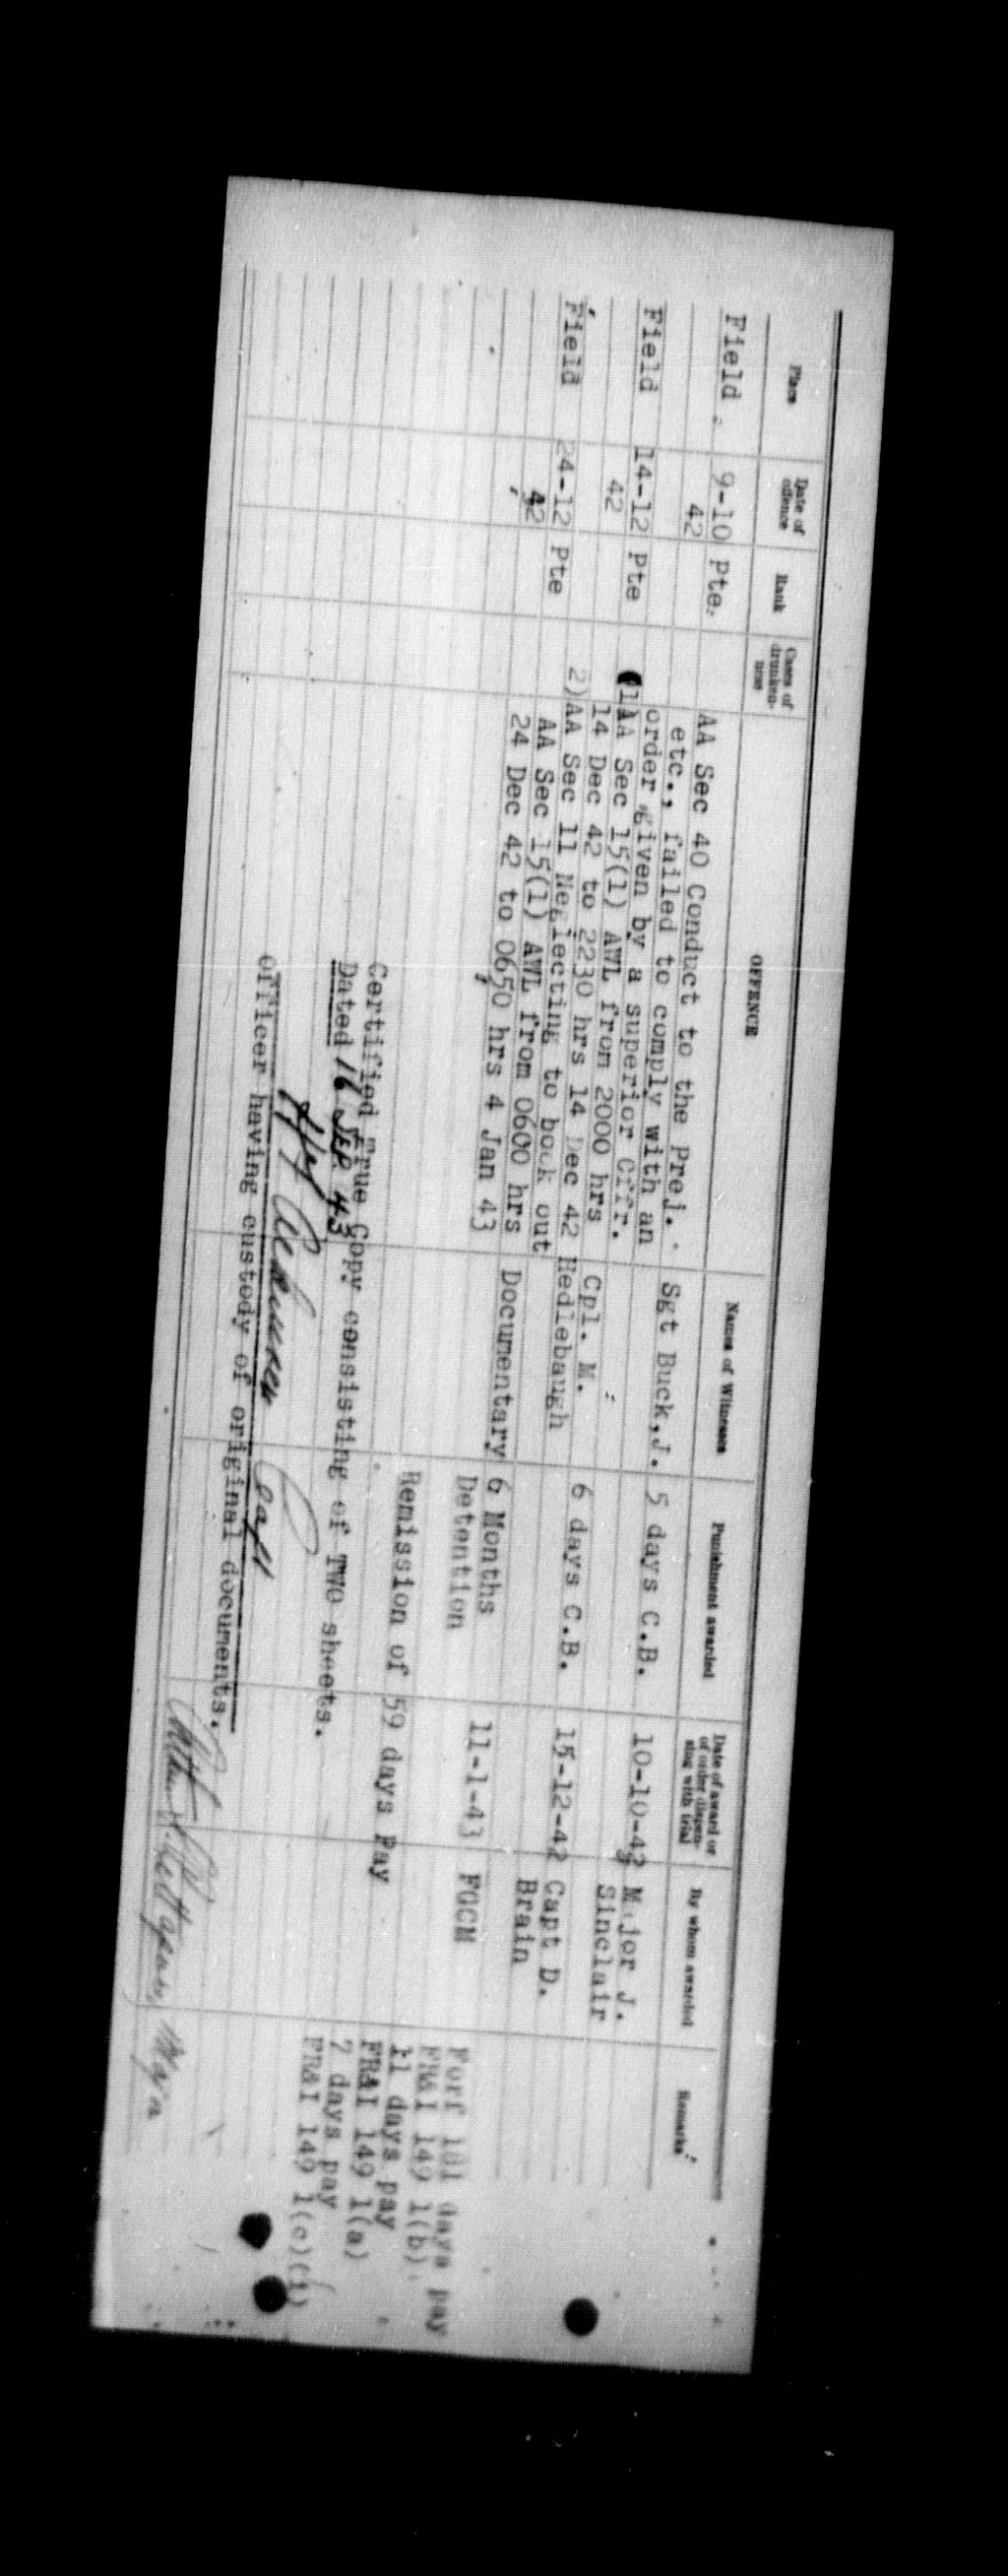 Place Date of offence Rank Cases of drunken-ness OFFENCE Names of Witnesses Punishment awarded Date of award or of order dispen-sing with trial By whom awarded Remarks
Field 9-10 Pte. AA Sec 40 Conduct to the Prej. Sgt Buck,J. 5 days C.B. 10-10-42 Major J.
42 etc., failed to comply with an Sinclair
order given by a superior Offr.
Field 14-12 Pte (1)AA Sec 15(1) AWL from 2000 hrs Cpl. M. 6 days C.B. 15-12-42 Capt D.
42 14 Dec 42 to 2230 hrs 14 Dec 42 Hedlebaugh Brain
2)AA Sec 11 Neglecting to book out
Field 24-12 Pte AA Sec 15(1) AWL from 0600 hrs Documentary 6 Months 11-1-43 FGCM Forf 181 days pay
42 24 Dec 42 to 0650 hrs 4 Jan 43 Detention FR&I 149 1(b).
11 days pay
Remission of 59 days Pay FR&I 149 1(a)
7 days pay
FR&I 149 1(c)(i)
Certified True Copy consisting of TWO sheets.
Dated 16 SEP 43
Capt
Officer having custody of original documents.
Major